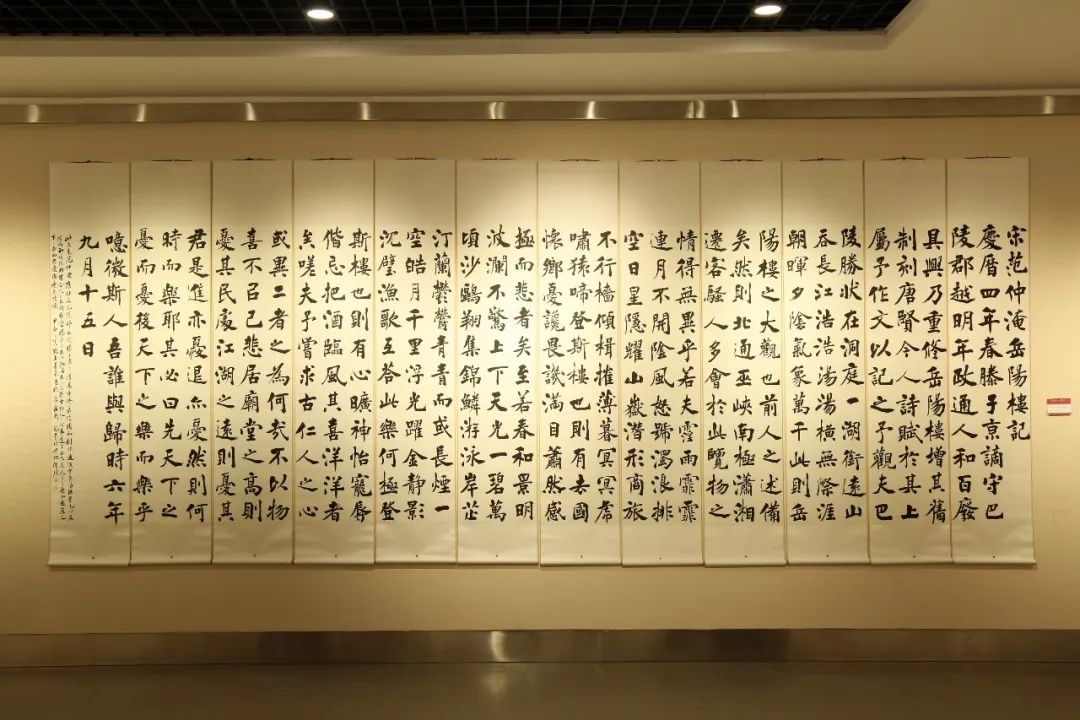 宋范仲淹岳陽樓記
慶曆四年春滕子京謫守巴
陵郡越明年政通人和百廢
具興乃重修岳陽樓增其舊
制刻唐賢今人詩賦於其上
屬予作文以記之予觀夫巴
陵勝狀在洞庭一湖銜遠山
吞長江浩浩湯湯橫無際涯
朝暉夕陰氣象萬千此則岳
陽樓之大觀也前人之述備
矣然則北通巫峽南極瀟湘
遷客騷人多會於此覽物之
情得無異乎若夫霪雨霏霏
連月不開陰風怒號濁浪排
空日星隱耀山嶽潛形商旅
不行檣傾楫摧薄暮冥冥虎
嘯猿啼登斯樓也則有去國
懷鄉憂讒畏譏滿目蕭然感
極而悲者矣至若春和景明
波瀾不驚上下天光一碧萬
頃沙鷗翔集錦鱗游泳岸芷
汀蘭鬱鬱青青而或長煙一
空皓月千里浮光躍金静影
沉璧漁歌互答此樂何極登
斯樓也則有心曠神怡寵辱
偕忘把酒臨風其喜洋洋者
矣嗟夫予嘗求古仁人之心
或異二者之為何哉不以物
喜不㠯己悲居廟堂之高則
憂其民處江湖之遠則憂其
君是進亦憂退亦憂然則何
時而樂耶其必曰先天下之
憂而憂後天下之樂而樂乎
噫微斯人吾誰與歸時六年
九月十五日